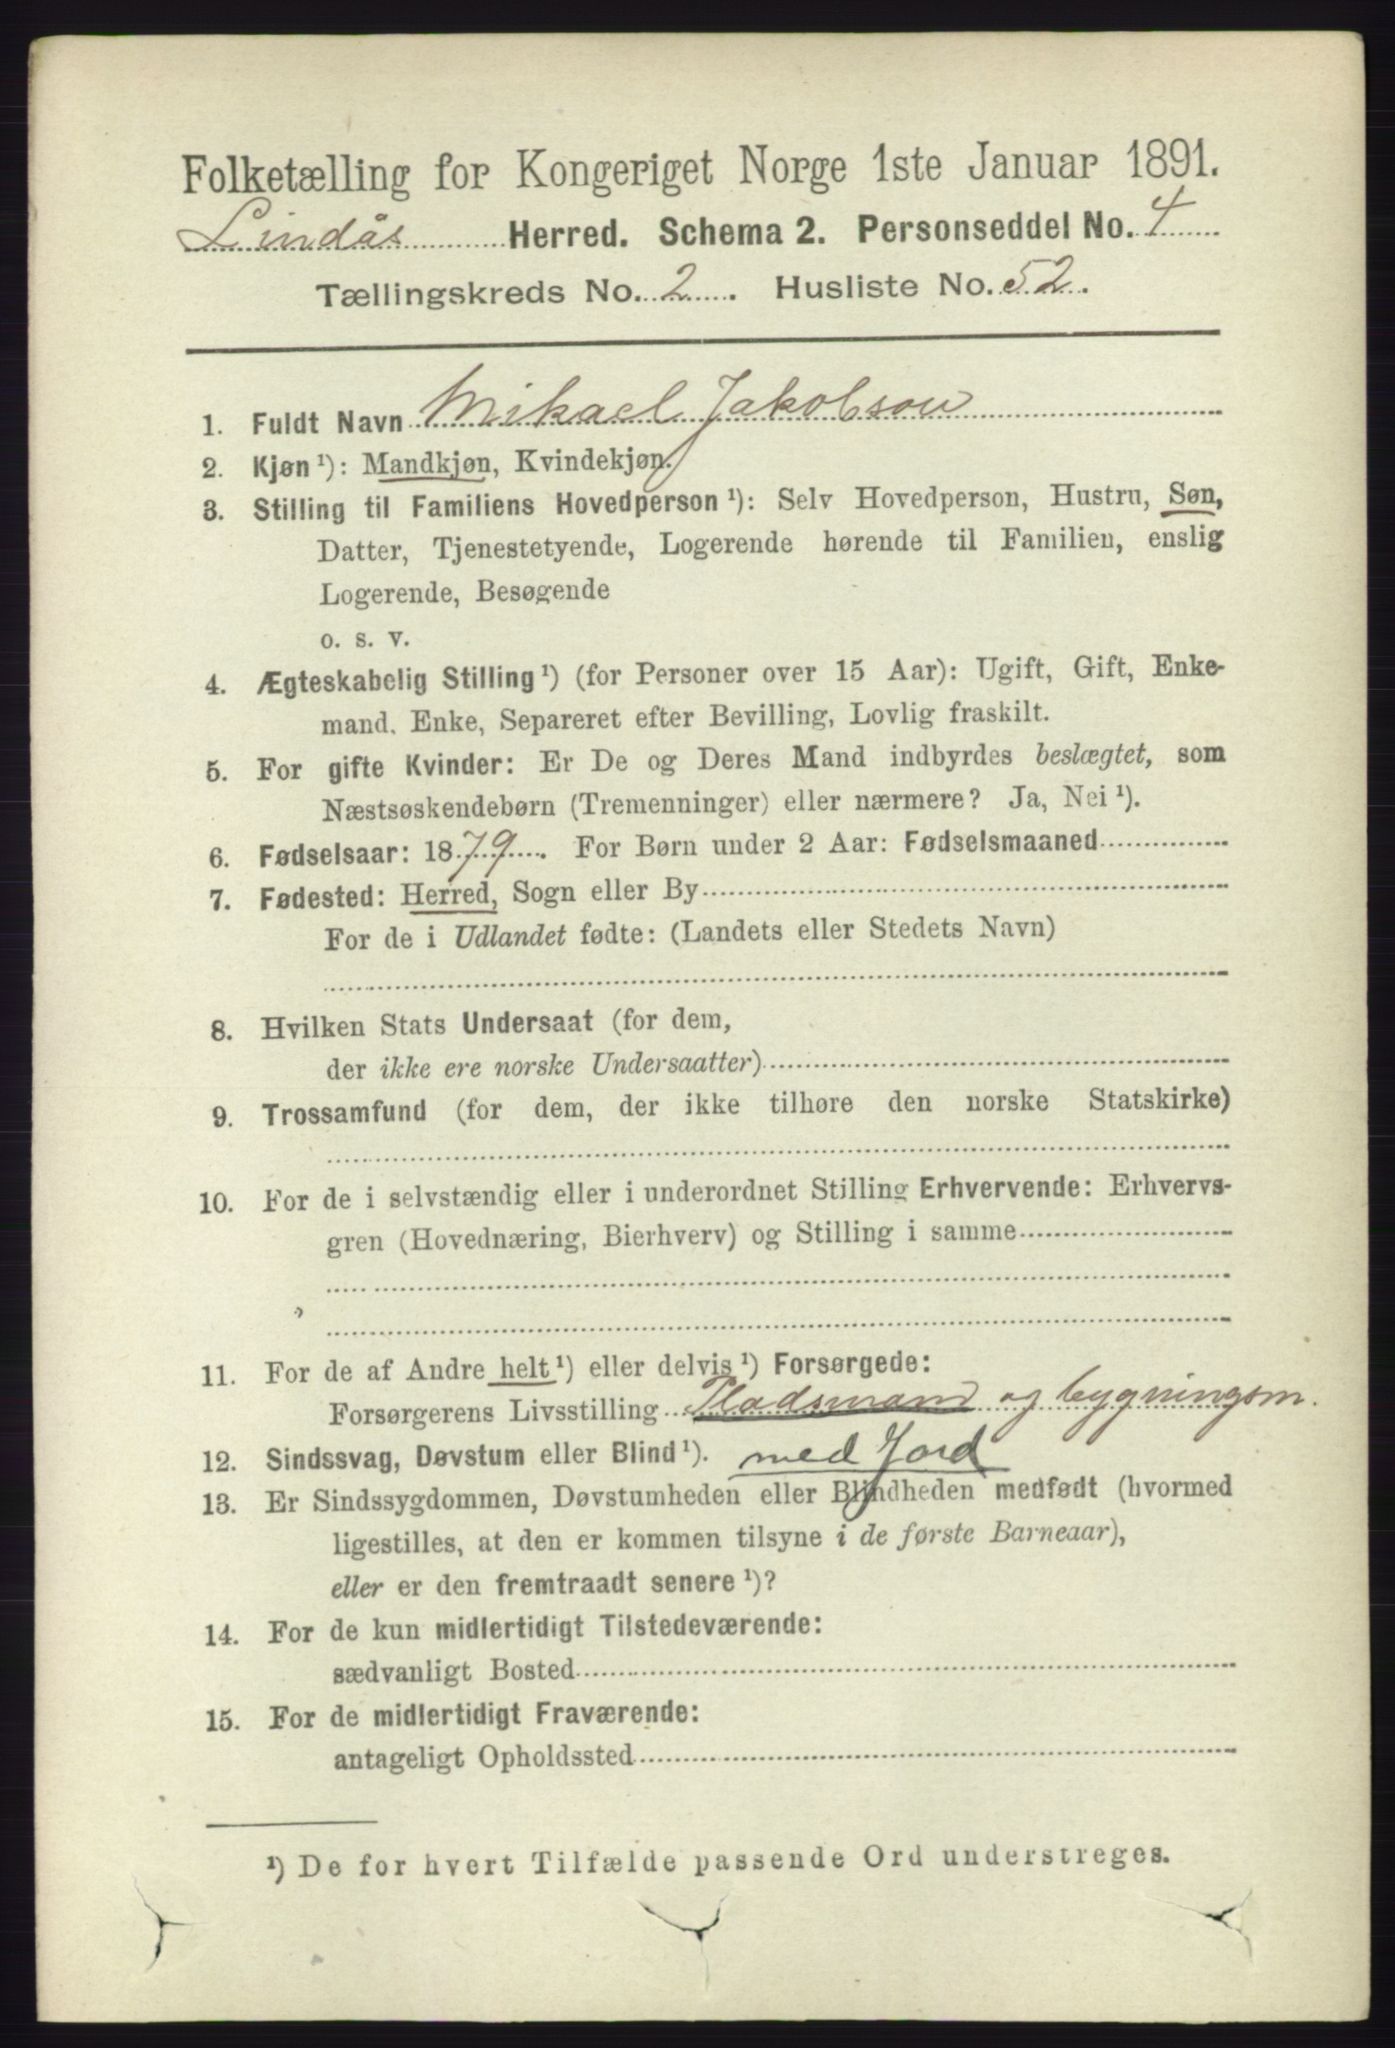 Folketælling for Kongeriget Norge 1ste Januar 1891.
Lindås Herred. Schema 2. Personseddel No. 4
Tællingskreds No. 2. Husliste No. 52.
1. Fuldt Navn Mikael Jakobson
2. Kjøn ¹): Mandkjøn, Kvindekjøn.
3. Stilling til Familiens Hovedperson ¹): Selv Hovedperson, Hustru, Søn,
Datter, Tjenestetyende, Logerende hørende til Familien, enslig
Logerende, Besøgende
o. s. v.
4. Ægteskabelig Stilling ¹) (for Personer over 15 Aar): Ugift, Gift, Enke-
mand, Enke, Separeret efter Bevilling, Lovlig fraskilt.
5. For gifte Kvinder: Er De og Deres Mand indbyrdes beslægtet, som
Næstsøskendebørn (Tremenninger) eller nærmere? Ja, Nei ¹).
6. Fødselsaar: 1879. For Børn under 2 Aar: Fødselsmaaned
7. Fødested: Herred, Sogn eller By
For de i Udlandet fødte: (Landets eller Stedets Navn)
8. Hvilken Stats Undersaat (for dem,
der ikke ere norske Undersaatter)
9. Trossamfund (for dem, der ikke tilhøre den norske Statskirke)
10. For de i selvstændig eller i underordnet Stilling Erhvervende: Erhvervs-
gren (Hovednæring, Bierhverv) og Stilling i samme
11. For de af Andre helt ¹) eller delvis ¹) Forsørgede:
Forsørgerens Livsstilling Pladsmand og bygningsm.
12. Sindssvag, Døvstum eller Blind ¹). med Jord
13. Er Sindssygdommen, Døvstumheden eller Blindheden medfødt (hvormed
ligestilles, at den er kommen tilsyne i de første Barneaar),
eller er den fremtraadt senere ¹)?
14. For de kun midlertidigt Tilstedeværende:
sædvanligt Bosted
15. For de midlertidigt Fraværende:
antageligt Opholdssted
¹) De for hvert Tilfælde passende Ord understreges.